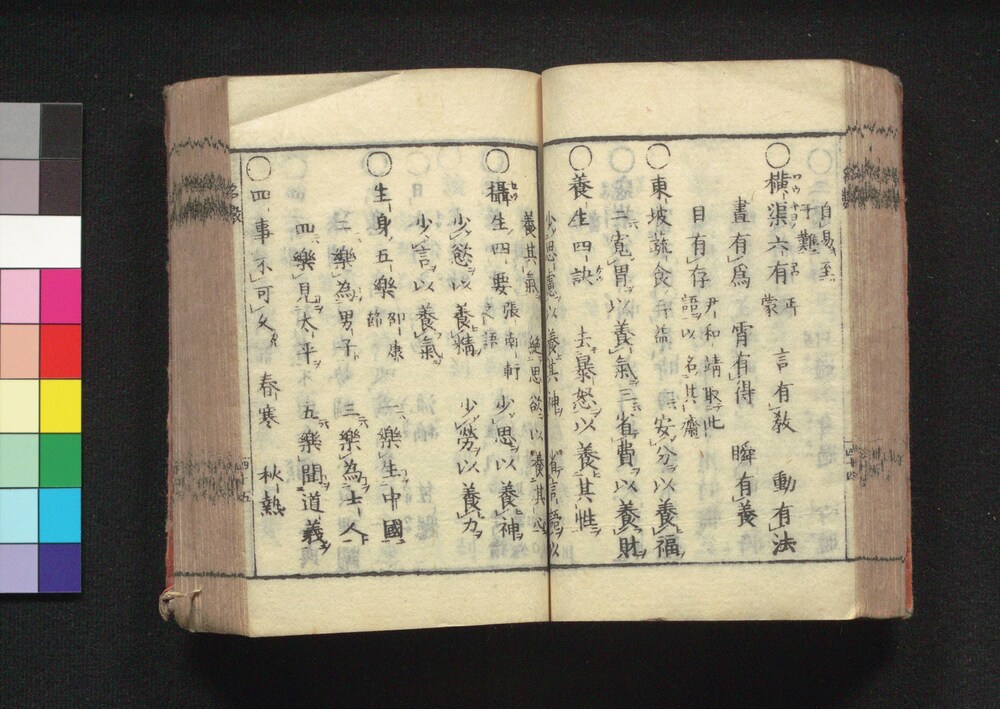 自易至
于難
〇横渠六有 正蒙 言有教 動有法
晝有爲 宵有得 瞬有養
目有存 尹和靖取此語以名其齋
〇東坡蔬食 三益 安分以養福
二寛胃以養氣 三省費以養財
〇養生四訣 去暴怒以養其性
少思慮以養其神 省言語以
養其氣 絶思慾以養其心
〇攝生四要 張南軒文語 少思以養神
少慾以養精 少勞以養力
少言以養氣
〇生身五樂 邵康節 一樂生中國
二樂為男子 三樂為士人
四樂見太平 五樂聞道義
〇四事不可久 春寒 秋熱